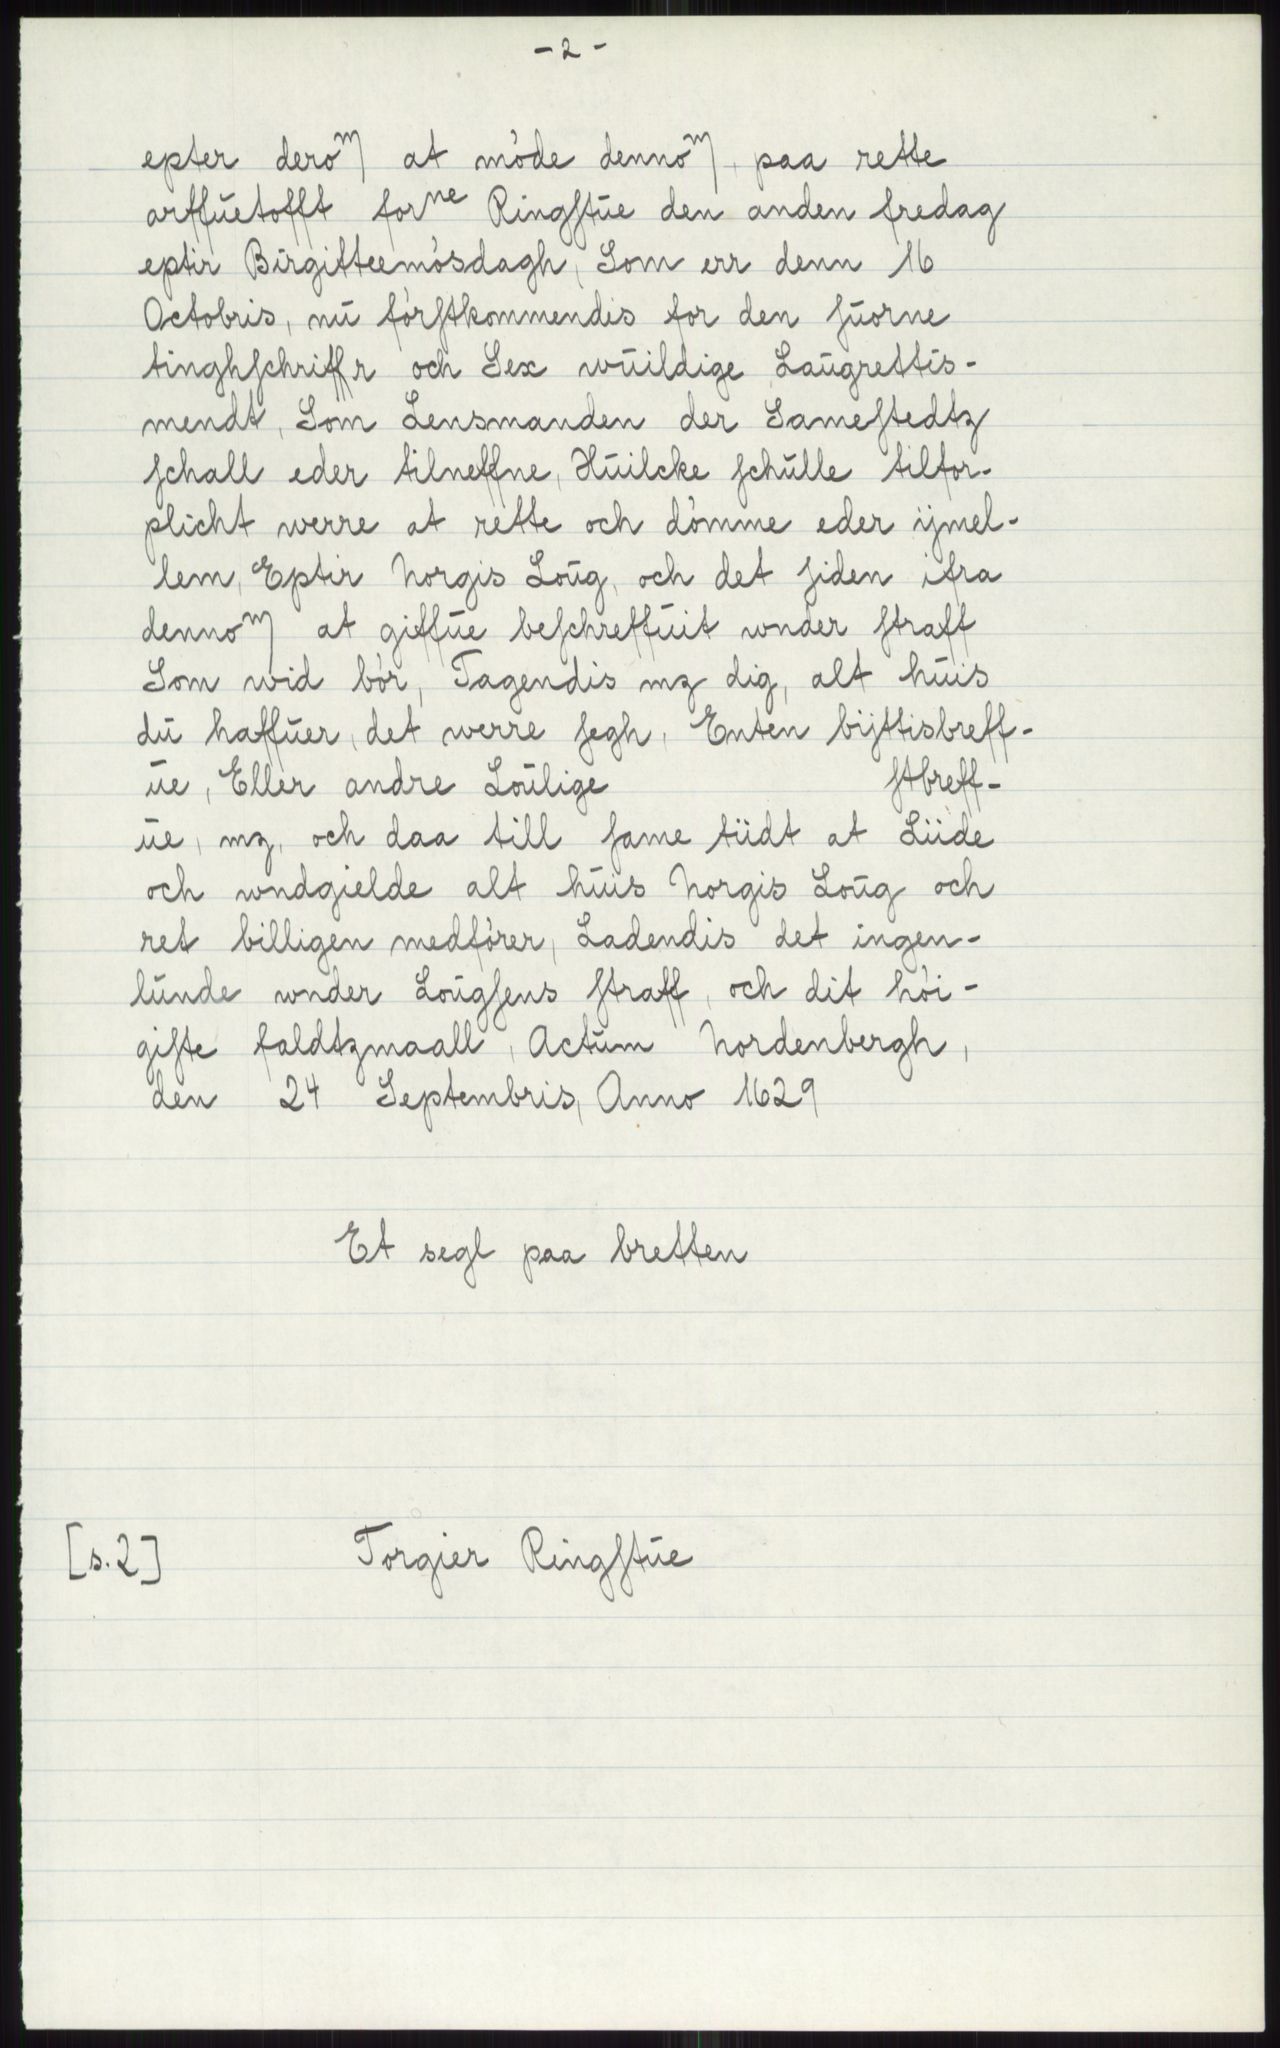 - 2 -
epter dero^m at móde denno^m, paa rette
arffūetofft for^ne Ringſtūe den anden fredag
eptir Birgitteemósdagh, Som err denn 16
Octobris, nū fórſtkommendis for den ſūorne
tinghſchriffr och Sex wūildige Laūgrettis-
mendt, Som Lensmanden der Sameſtedtz
ſchall eder tilneffne, Hūilcke ſchūlle tilfor-
plicht werre at rette och dómme eder ijmel-
lem, Eptir Norgis Loūg, och det ſiden ifra
denno^m at giffūe beſchreffūit wnder ſtraff
Som wid bór, Tagendis mz dig, alt hūis
dū haffūer, det werre ſegh, Enten bijttisbreff-
ūe, Eller andre Loūlige ſtbreff-
ūe, mz, och daa till ſame tüdt at Lüde
och wndgielde alt hūis Norgis Loūg och
ret billigen medfórer, Ladendis det ingen-
lūnde wnder Loūgſens ſtraff, och dit hói-
giſte faldtzmaall, Actūm Nordenbergh,
den 24 Septembris, Anno 1629
Et segl paa bretten
[s.2] Torgier Ringſtūe